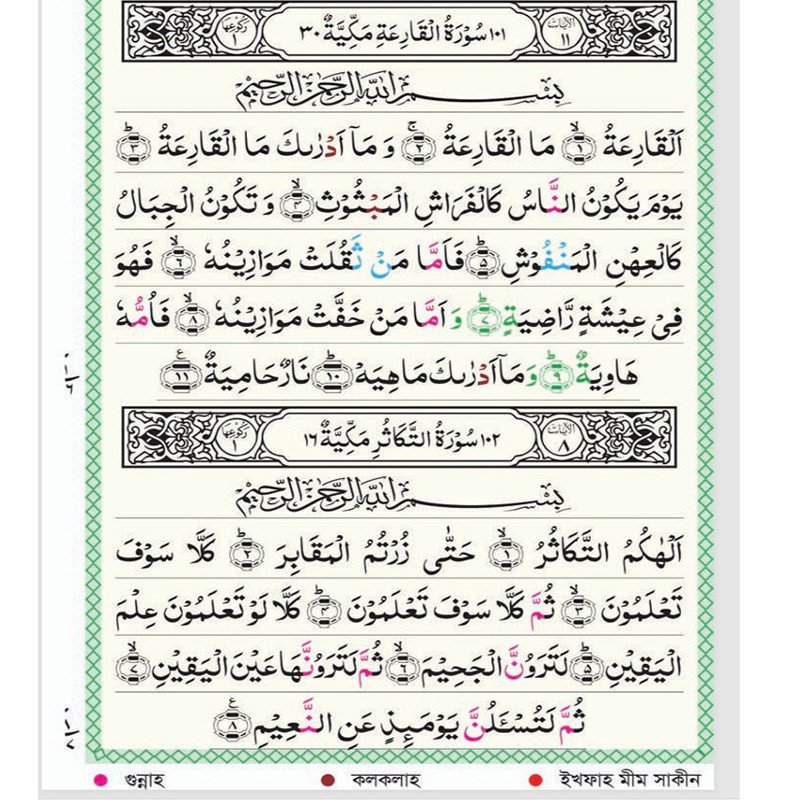 الآيات ١١ ١٠١ سُوْرَةُ الْقَارِعَةِ مَكِّيَّةٌ ٣٠ ركوعها ١
بِسْمِ اللّٰهِ الرَّحْمٰنِ الرَّحِيْمِ
اَلْقَارِعَةُ ۙ﴿١﴾ مَا الْقَارِعَةُ ۚ﴿٢﴾ وَ مَاۤ اَدْرٰىكَ مَا الْقَارِعَةُ ؕ﴿٣﴾
يَوْمَ يَكُوْنُ النَّاسُ كَالْفَرَاشِ الْمَبْثُوْثِ ۙ﴿٤﴾ وَ تَكُوْنُ الْجِبَالُ
كَالْعِهْنِ الْمَنْفُوْشِ ؕ﴿٥﴾ فَاَمَّا مَنْ ثَقُلَتْ مَوَازِيْنُهٗ ۙ﴿٦﴾ فَهُوَ
فِيْ عِيْشَةٍ رَّاضِيَةٍ ؕ﴿٧﴾ وَ اَمَّا مَنْ خَفَّتْ مَوَازِيْنُهٗ ۙ﴿٨﴾ فَاُمُّهٗ
هَاوِيَةٌ ؕ﴿٩﴾ وَ مَاۤ اَدْرٰىكَ مَاهِيَهْ ؕ﴿١٠﴾ نَارٌ حَامِيَةٌ ﴿١١﴾
الآيات ٨ ١٠٢ سُوْرَةُ التَّكَاثُرِ مَكِّيَّةٌ ١٦ ركوعها ١
بِسْمِ اللّٰهِ الرَّحْمٰنِ الرَّحِيْمِ
اَلْهٰىكُمُ التَّكَاثُرُ ۙ﴿١﴾ حَتّٰى زُرْتُمُ الْمَقَابِرَ ؕ﴿٢﴾ كَلَّا سَوْفَ
تَعْلَمُوْنَ ۙ﴿٣﴾ ثُمَّ كَلَّا سَوْفَ تَعْلَمُوْنَ ؕ﴿٤﴾ كَلَّا لَوْ تَعْلَمُوْنَ عِلْمَ
الْيَقِيْنِ ؕ﴿٥﴾ لَتَرَوُنَّ الْجَحِيْمَ ۙ﴿٦﴾ ثُمَّ لَتَرَوُنَّهَا عَيْنَ الْيَقِيْنِ ۙ﴿٧﴾
ثُمَّ لَتُسْـَٔلُنَّ يَوْمَىِٕذٍ عَنِ النَّعِيْمِ ﴿٨﴾
গুন্নাহ কলকলাহ ইখফাহ মীম সাকীন